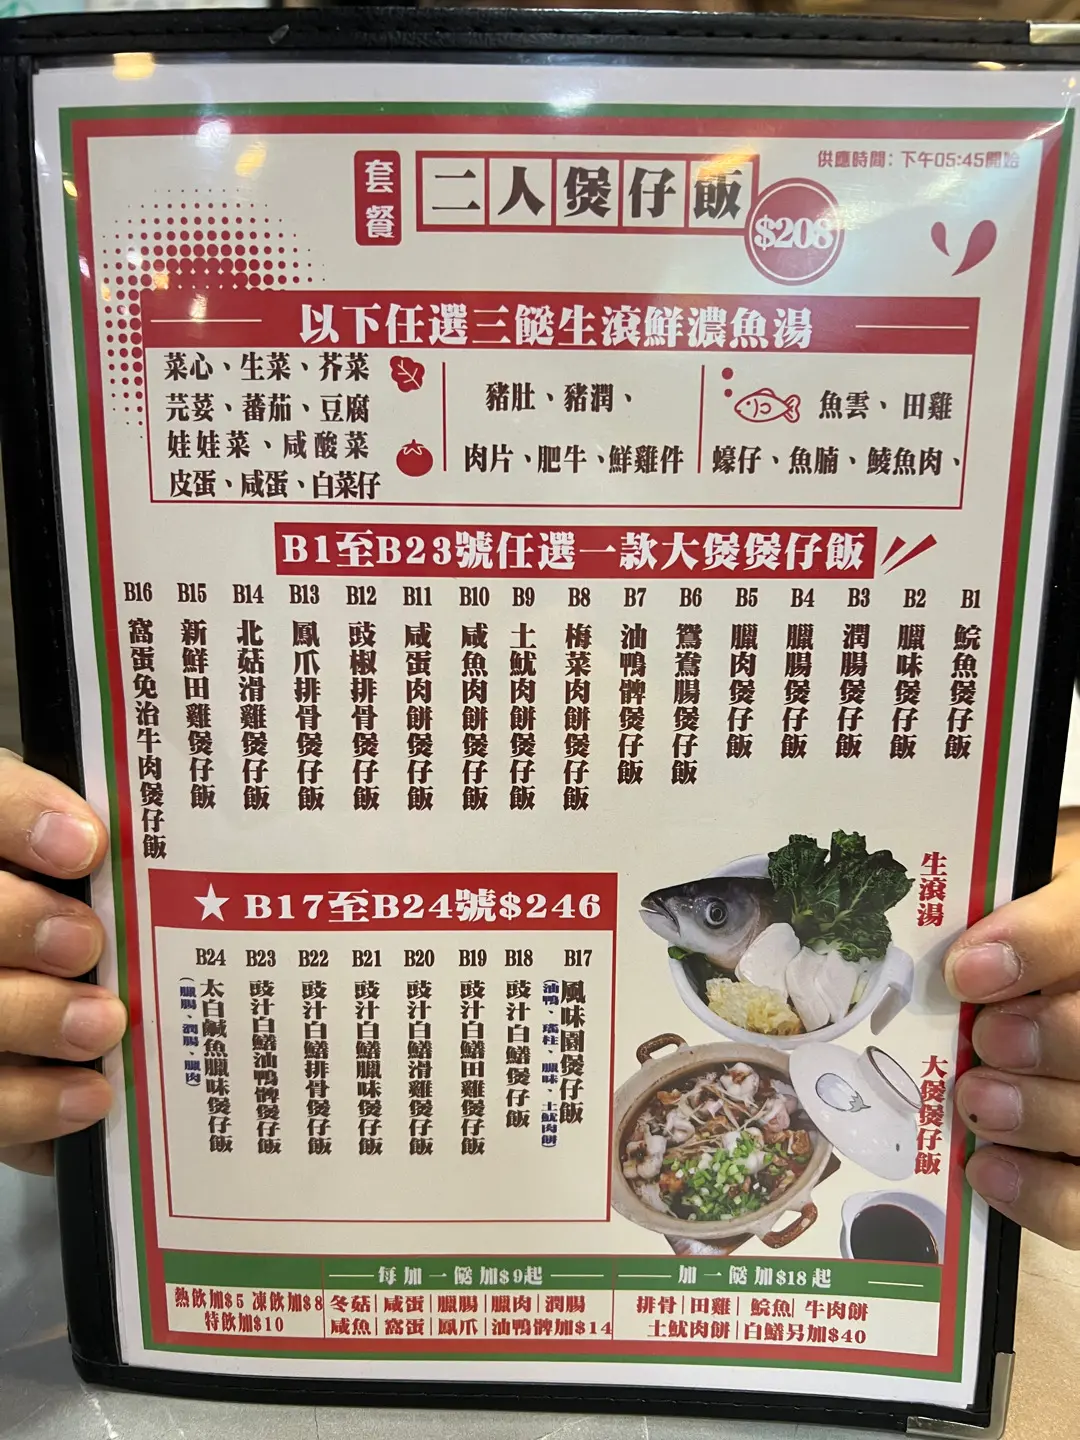 供應時間：下午05:45開始
套餐
二人煲仔飯
$208
以下任選三餸生滾鮮濃魚湯
菜心、生菜、芥菜
芫荽、蕃茄、豆腐
娃娃菜、咸酸菜
皮蛋、咸蛋、白菜仔
豬肚、豬潤、
肉片、肥牛、鮮雞件
魚雲、田雞
蠔仔、魚腩、鯪魚肉、
B1至B23號任選一款大煲煲仔飯
B1 鯇魚煲仔飯
B2 臘味煲仔飯
B3 潤腸煲仔飯
B4 臘腸煲仔飯
B5 臘肉煲仔飯
B6 鴛鴦腸煲仔飯
B7 油鴨髀煲仔飯
B8 梅菜肉餅煲仔飯
B9 土魷肉餅煲仔飯
B10 咸魚肉餅煲仔飯
B11 咸蛋肉餅煲仔飯
B12 豉椒排骨煲仔飯
B13 鳳爪排骨煲仔飯
B14 北菇滑雞煲仔飯
B15 新鮮田雞煲仔飯
B16 窩蛋免治牛肉煲仔飯
★ B17至B24號$246
B17 風味園煲仔飯
(油鴨、瑤柱、臘味、土魷肉餅)
B18 豉汁白鱔煲仔飯
B19 豉汁白鱔田雞煲仔飯
B20 豉汁白鱔滑雞煲仔飯
B21 豉汁白鱔臘味煲仔飯
B22 豉汁白鱔排骨煲仔飯
B23 豉汁白鱔油鴨髀煲仔飯
B24 太白鹹魚臘味煲仔飯
(臘腸、潤腸、臘肉)
生滾湯
大煲煲仔飯
熱飲加$5 凍飲加$8
特飲加$10
每加一餸加$9起
冬菇|咸蛋|臘腸|臘肉|潤腸
咸魚|窩蛋|鳳爪|油鴨髀加$14
加一餸加$18起
排骨|田雞|鯇魚|牛肉餅
土魷肉餅|白鱔另加$40